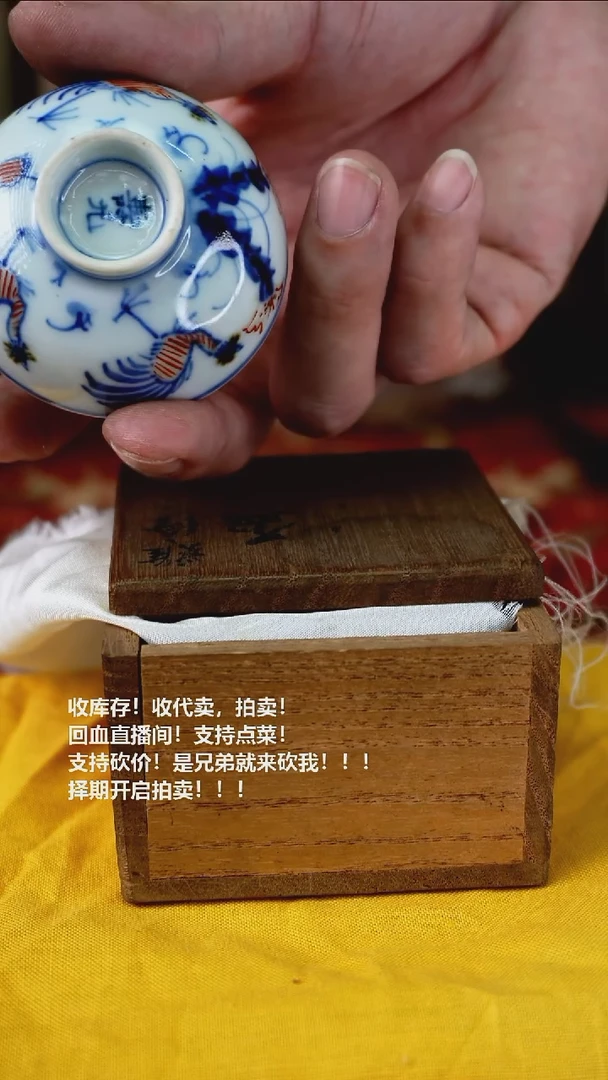 收库存！收代卖，拍卖！
回血直播间！支持点菜！
支持砍价！是兄弟就来砍我！！！
择期开启拍卖！！！